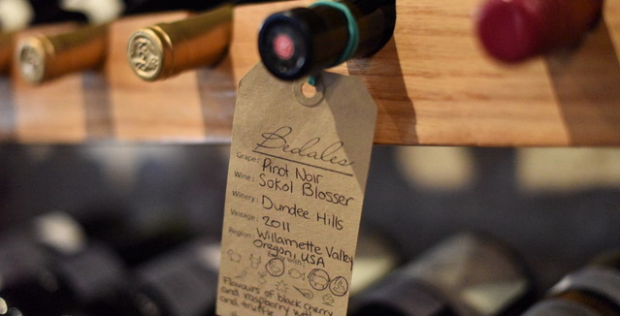 Bedales
Grape: Pinot Noir
Wine: Sokol Blosser
Winery: Dundee Hills
Vintage: 2011
Region: Willamette Valley
Oregon, USA
Flavours of black cherry
and raspberry with
and